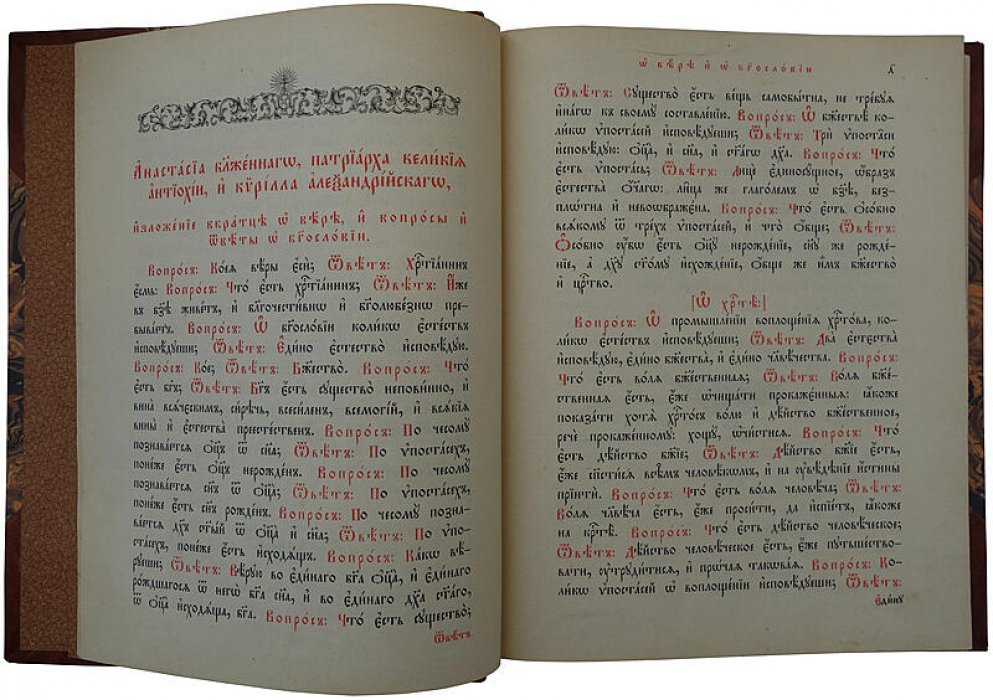 А҆наста́сїа бл҃же́ннагѡ, патрїа́рха вели́кїѧ
а҆нтїохі́и, и҆ кѷрі́лла а҆леѯандрі́йскагѡ,
и҆зложе́нїе вкра́тцѣ ѡ҆ вѣ́рѣ, и҆ вопро́сы и҆
ѿвѣ́ты ѡ҆ бг҃осло́вїи.
Вопро́съ: Ко́еѧ вѣ́ры є҆сѝ; Ѿвѣ́тъ: Хрⷭ҇тїа́нинъ
є҆́смь: Вопро́съ: Что̀ є҆́сть хрⷭ҇тїа́нинъ; Ѿвѣ́тъ: И҆́же
въ бз҃ѣ живе́тъ, и҆ бл҃гоче́стивнѡ и҆ бг҃олюбе́знѡ пре-
быва́етъ. Вопро́съ: Ѽ бг҃осло́вїи коли́кѡ є҆сте́ствъ
и҆сповѣ́дуеши; Ѿвѣ́тъ: Е҆ди́но є҆стество̀ и҆сповѣ́дую.
Вопро́съ: Ко́е; Ѿвѣ́тъ: Бж҃ество̀. Вопро́съ: Что̀
є҆́сть бг҃ъ; Ѿвѣ́тъ: Бг҃ъ є҆́сть существо̀ непови́нно, и҆
вина̀ всѧ́ческимъ, си́рѣчь, всеси́ленъ, всемогі́й, и҆ всѧ́кїѧ
вины̀ и҆ є҆стества̀ престе́ственъ. Вопро́съ: По чесому̀
познава́етсѧ ѻ҆ц҃ъ ѿ сн҃а; Ѿвѣ́тъ: По ѵ҆поста́сехъ,
поне́же є҆́сть ѻ҆ц҃ъ нерожде́нъ. Вопро́съ: По чесому̀
познава́етсѧ сн҃ъ ѿ ѻ҆ц҃а̀; Ѿвѣ́тъ: По ѵ҆поста́сехъ,
поне́же є҆́сть сн҃ъ рожде́нъ. Вопро́съ: По чесому̀ позна-
ва́етсѧ дх҃ъ ст҃ы́й ѿ ѻ҆ц҃а̀ и҆ сн҃а; Ѿвѣ́тъ: По ѵ҆по-
ста́сѣхъ, поне́же є҆́сть и҆сходѧ́щъ. Вопро́съ: Ка́кѡ вѣ́-
руеши; Ѿвѣ́тъ: Вѣ́рую во є҆ди́наго бг҃а ѻ҆ц҃а̀, и҆ є҆ди́наго
ро́ждшагосѧ ѿ негѡ̀ бг҃а сн҃а, и҆ во є҆ди́наго дх҃а ст҃а́го,
ѿ ѻ҆ц҃а̀ и҆сходѧ́ща, бг҃а. Вопро́съ: Что̀ є҆́сть существо̀;
Ѿвѣ́тъ
ѡ҆ вѣ́рѣ и҆ ѡ҆ бг҃осло́вїи
Ѿвѣ́тъ: Существо̀ є҆́сть ве́щь самобы́тна, не тре́буѧ
и҆на́гѡ къ своему̀ составле́нїю. Вопро́съ: Ѽ бж҃ествѣ̀ ко-
ли́кѡ ѵ҆поста́сей и҆сповѣ́дуеши; Ѿвѣ́тъ: Трѝ ѵ҆поста́си
и҆сповѣ́дую: ѻ҆ц҃а̀, и҆ сн҃а, и҆ ст҃а́гѡ дх҃а. Вопро́съ: Что̀
є҆́сть ѵ҆поста́сь; Ѿвѣ́тъ: Лицѐ є҆диносу́щное, ѡ҆́бразъ
є҆стества̀ ѻ҆́ч҃агѡ: ли́ца же глаго́лемъ ѡ҆ бз҃ѣ, без-
пло́тна и҆ невоѡбраже́на. Вопро́съ: Что̀ є҆́сть ѻ҆со́бно
всѧ́кому ѿ тре́хъ ѵ҆поста́сей, и҆ что̀ о҆́бще; Ѿвѣ́тъ:
Ѻ҆со́бно ѹ҆́бѡ є҆́сть ѻ҆ц҃ꙋ̀ нерожде́нїе, сн҃ꙋ же рожде́-
нїе, а҆ дх҃ꙋ ст҃о́мꙋ и҆схожде́нїе, о҆́бще же и҆̀мъ бж҃ество̀
и҆ црⷭ҇тво.
[Ѽ хрⷭ҇тѣ̀:]
Вопро́съ: Ѽ промышле́нїи воплоще́нїѧ хрⷭ҇то́ва, ко-
ли́кѡ є҆сте́ствъ и҆сповѣ́дуеши; Ѿвѣ́тъ: Два̀ є҆стества̀
и҆сповѣ́дую, є҆ди́но бж҃ества̀, и҆ є҆ди́но чл҃вѣ́чества. Вопро́съ:
Что̀ є҆́сть во́лѧ бж҃е́ственнаѧ; Ѿвѣ́тъ: Во́лѧ бж҃е́-
ственнаѧ є҆́сть, є҆́же ѡ҆чища́ти прокаже́нныѧ: ꙗ҆́коже
показа́ти хотѧ̀ хрⷭ҇то́съ во́лю и҆ дѣ́йство бж҃е́ственное,
речѐ прокаже́нному: хощу̀, ѡ҆чи́стисѧ. Вопро́съ: Что̀
є҆́сть дѣ́йство бж҃їе; Ѿвѣ́тъ: Дѣ́йство бж҃їе є҆́сть,
є҆́же спⷭ҇ти́сѧ всѣ́мъ человѣ́комъ, и҆ на сꙋвѣ́дѣнїе и҆́стины
прїитѝ. Вопро́съ: Что̀ є҆́сть во́лѧ человѣ́ча; Ѿвѣ́тъ:
Во́лѧ чл҃вѣ́ча є҆́сть, є҆́же проси́ти, да и҆спїе́тъ, ꙗ҆́коже
на крⷭ҇тѣ̀. Вопро́съ: Что̀ є҆́сть дѣ́йство человѣ́ческое;
Ѿвѣ́тъ: Дѣ́йство человѣ́ческое є҆́сть, є҆́же путеше́ство-
вати, ѹ҆трꙋди́тисѧ, и҆ про́чаѧ такова́ѧ. Вопро́съ: Ко-
ли́кѡ ѵ҆поста́сей ѡ҆ воплоще́нїи и҆сповѣ́дуеши; Ѿвѣ́тъ:
Е҆ди́ну